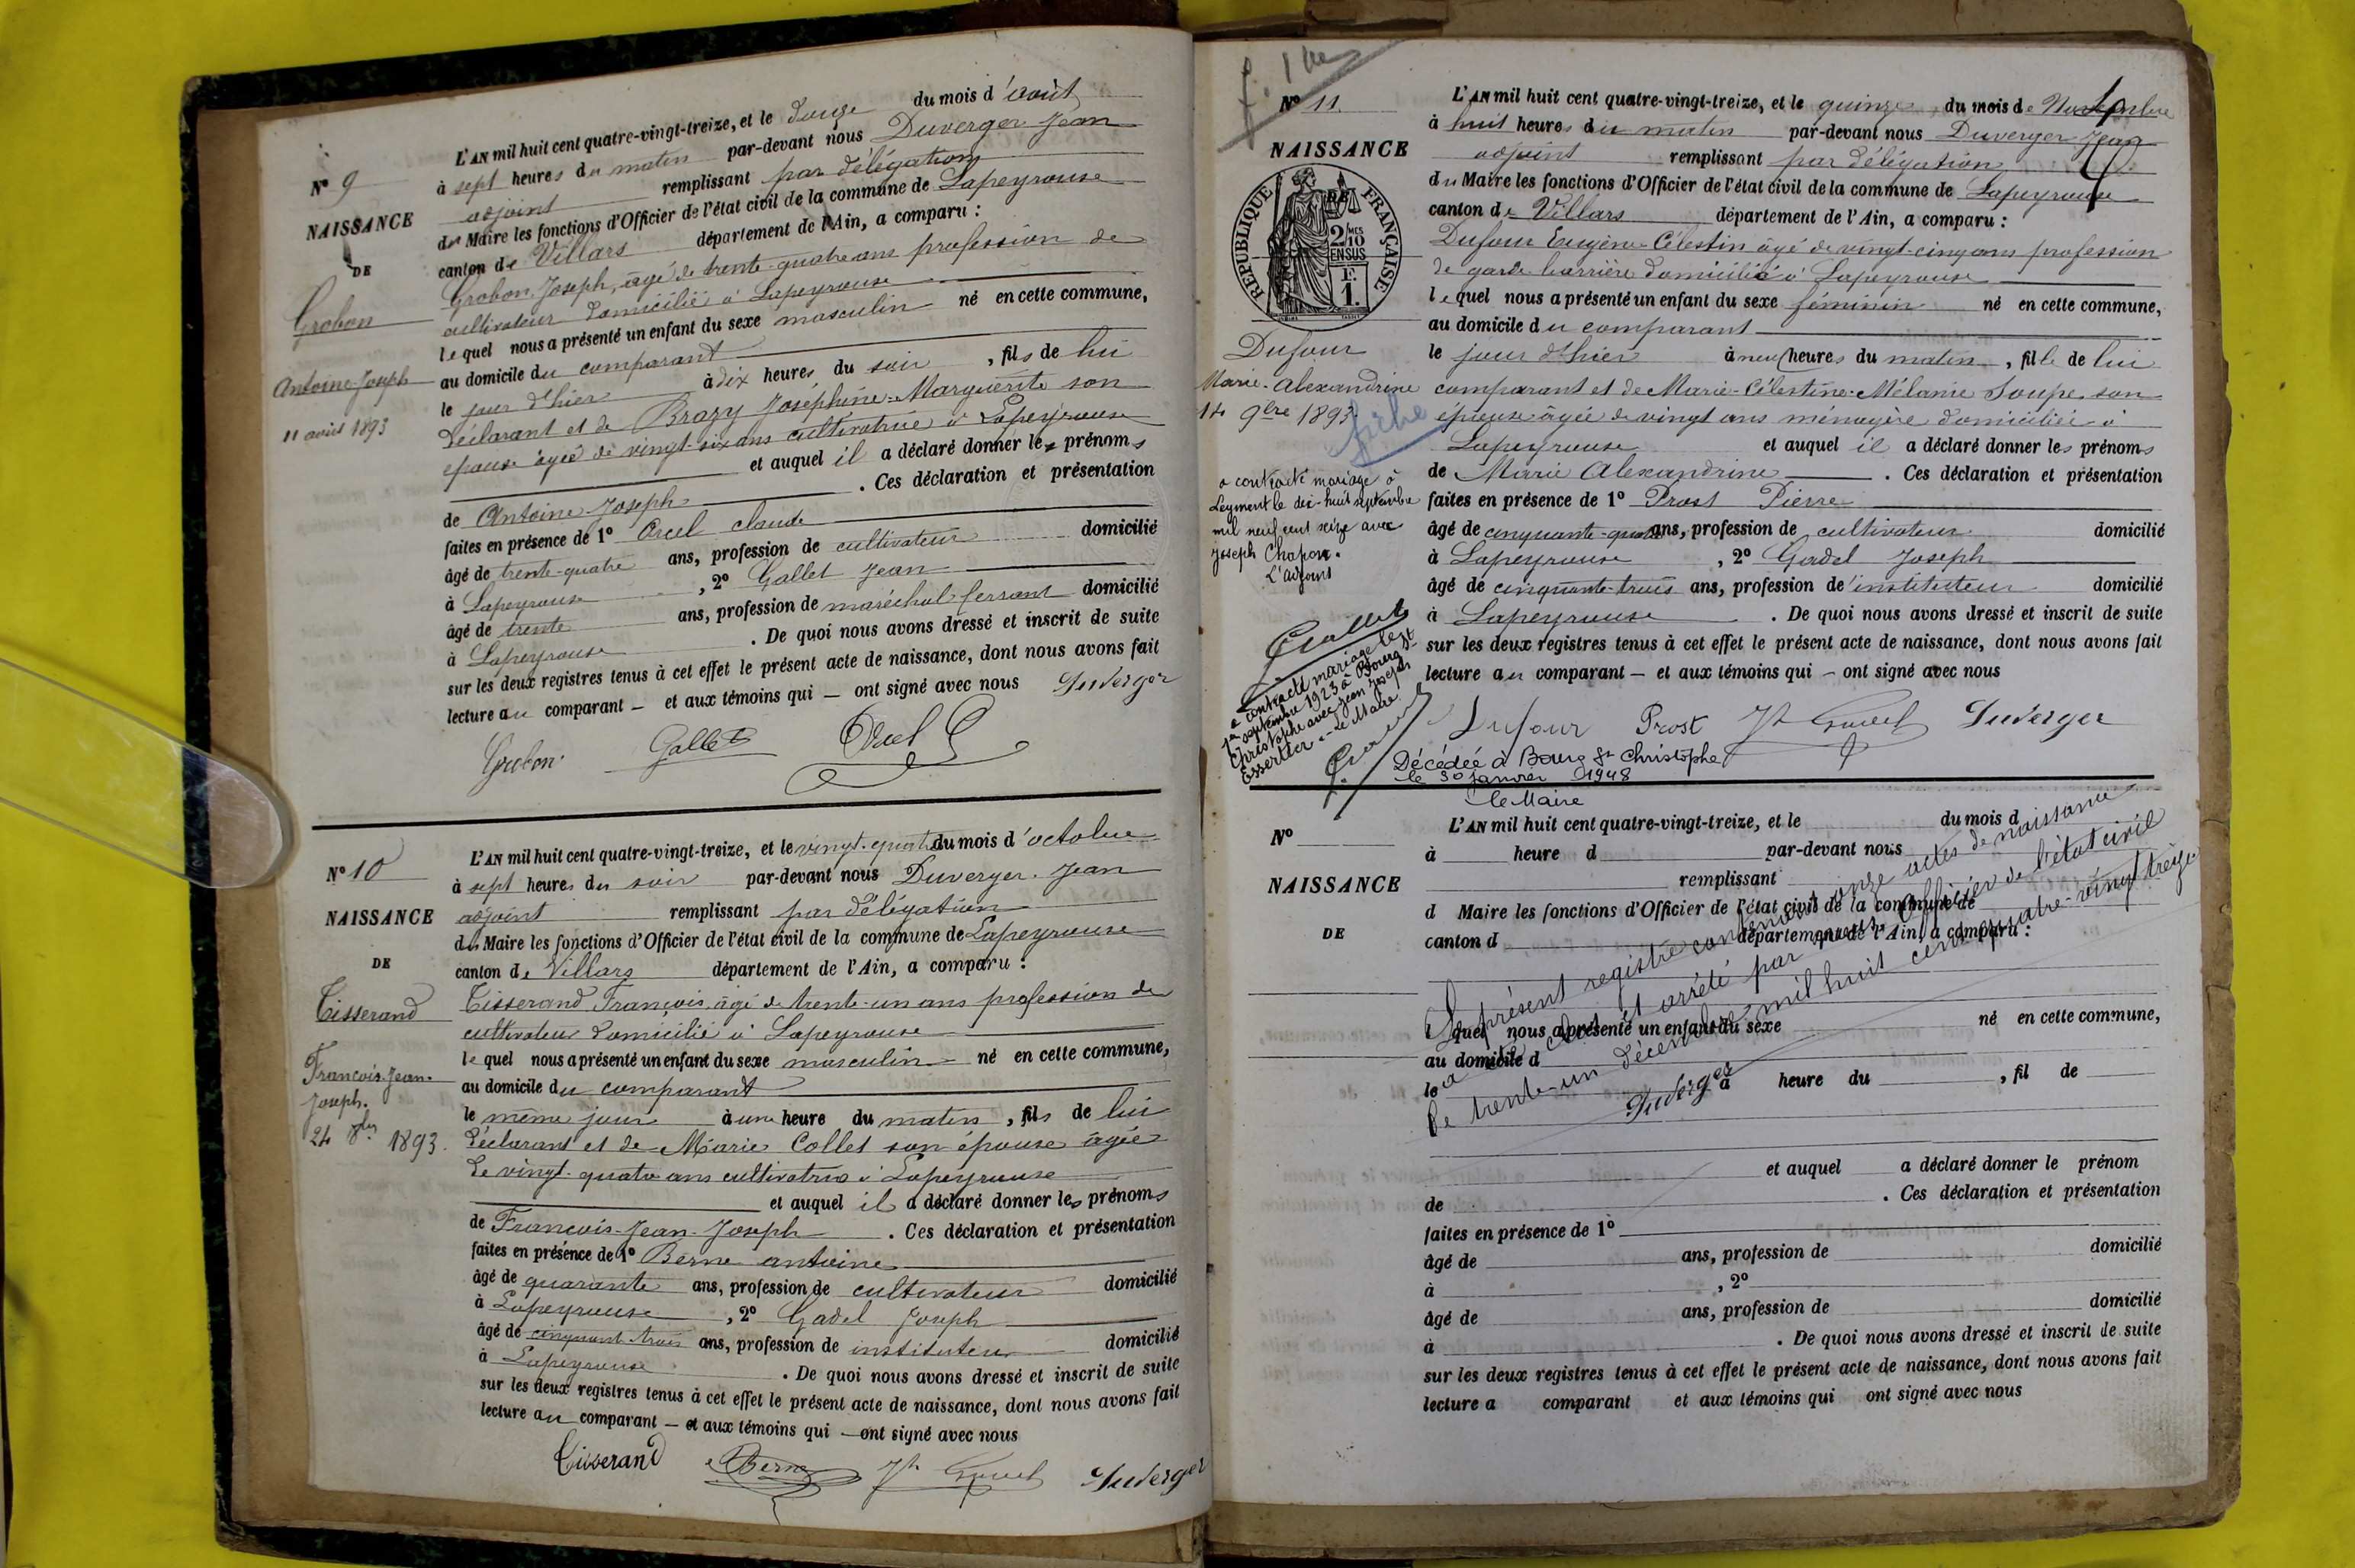 N° 9
NAISSANCE
DE
Grobon
Antoine-Joseph
11 août 1893
L'AN mil huit cent quatre-vingt-treize, et le douze du mois d'août
à sept heures du matin par-devant nous Duverger Jean
adjoint remplissant par délégation
du Maire les fonctions d'Officier de l'état civil de la commune de Lapeyrouse
canton de Villars département de l'Ain, a comparu :
Grobon Joseph, âgé de trente-quatre ans profession de
cultivateur domicilié à Lapeyrouse
lequel nous a présenté un enfant du sexe masculin né en cette commune,
au domicile du comparant
le jour d'hier à dix heures du soir, fils de lui
déclarant et de Brazy Joséphine-Marguerite son
épouse âgée de vingt-six ans cultivatrice à Lapeyrouse
et auquel il a déclaré donner les prénoms
de Antoine-Joseph. Ces déclaration et présentation
faites en présence de 1° Orcel claude
âgé de trente-quatre ans, profession de cultivateur domicilié
à Lapeyrouse, 2° Gallet Jean
âgé de trente ans, profession de maréchal-ferrant domicilié
à Lapeyrouse. De quoi nous avons dressé et inscrit de suite
sur les deux registres tenus à cet effet le présent acte de naissance, dont nous avons fait
lecture au comparant — et aux témoins qui — ont signé avec nous Duverger
Grobon Gallet Orcel C
N° 10
NAISSANCE
DE
Tisserand
François-Jean-
Joseph.
24 8bre 1893.
L'AN mil huit cent quatre-vingt-treize, et le vingt-quatre du mois d'octobre
à sept heures du soir par-devant nous Duverger Jean
adjoint remplissant par délégation
du Maire les fonctions d'Officier de l'état civil de la commune de Lapeyrouse
canton de Villars département de l'Ain, a comparu :
Tisserand François, âgé de trente-un ans profession de
cultivateur domicilié à Lapeyrouse
lequel nous a présenté un enfant du sexe masculin né en cette commune,
au domicile du comparant
le même jour à une heure du matin, fils de lui
déclarant et de Marie Collet son épouse âgée
de vingt-quatre ans cultivatrice à Lapeyrouse
et auquel il a déclaré donner les prénoms
de François-Jean-Joseph. Ces déclaration et présentation
faites en présence de 1° Berne antoine
âgé de quarante ans, profession de cultivateur domicilié
à Lapeyrouse, 2° Gadel Joseph
âgé de cinquante-trois ans, profession de instituteur domicilié
à Lapeyrouse. De quoi nous avons dressé et inscrit de suite
sur les deux registres tenus à cet effet le présent acte de naissance, dont nous avons fait
lecture au comparant — et aux témoins qui — ont signé avec nous
Tisserand Berne Duverger
N° 11
NAISSANCE
RÉPUBLIQUE FRANÇAISE
2/10 MES
EN SUS
F. 1.
Dufour
Marie-Alexandrine
14 9bre 1893
fiche
a contracté mariage à
Leyment le dix-huit septembre
mil neuf cent seize avec
Joseph Chapon.
L'adjoint
Gallet
a contracté mariage le
1er septembre 1923 à Bourg St
Christophe avec Jean Joseph
Essertier. Le Maire
L'AN mil huit cent quatre-vingt-treize, et le quinze du mois de Novembre
à huit heures du matin par-devant nous Duverger Jean
adjoint remplissant par délégation
du Maire les fonctions d'Officier de l'état civil de la commune de Lapeyrouse
canton de Villars département de l'Ain, a comparu :
Dufour Eugène-Célestin âgé de vingt-cinq ans profession
de garde barrière domicilié à Lapeyrouse
lequel nous a présenté un enfant du sexe féminin né en cette commune,
au domicile du comparant
le jour d'hier à neuf heures du matin, fille de lui
comparant et de Marie-Célestine-Mélanie Soupe son
épouse âgée de vingt ans ménagère domiciliée à
Lapeyrouse et auquel il a déclaré donner les prénoms
de Marie Alexandrine. Ces déclaration et présentation
faites en présence de 1° Prost Pierre
âgé de cinquante-quatre ans, profession de cultivateur domicilié
à Lapeyrouse, 2° Gadel Joseph
âgé de cinquante-trois ans, profession de instituteur domicilié
à Lapeyrouse. De quoi nous avons dressé et inscrit de suite
sur les deux registres tenus à cet effet le présent acte de naissance, dont nous avons fait
lecture au comparant — et aux témoins qui — ont signé avec nous
Dufour Prost Duverger
Décédée à Bourg St Christophe
le 30 janvier 1948
le Maire
N°
NAISSANCE
DE
L'AN mil huit cent quatre-vingt-treize, et le du mois d
à heure d par-devant nous
remplissant
d Maire les fonctions d'Officier de l'état civil de la commune de
canton d département de l'Ain, a comparu :
Le présent registre contenant onze actes de naissance
a été clos et arrêté par nous Officier de l'état civil
le trente-un décembre mil huit cent quatre-vingt treize
Duverger
l quel nous a présenté un enfant du sexe né en cette commune,
au domicile d
le à heure du , fil de
et auquel a déclaré donner le prénom
de . Ces déclaration et présentation
faites en présence de 1°
âgé de ans, profession de domicilié
à , 2°
âgé de ans, profession de domicilié
à . De quoi nous avons dressé et inscrit de suite
sur les deux registres tenus à cet effet le présent acte de naissance, dont nous avons fait
lecture a comparant et aux témoins qui ont signé avec nous